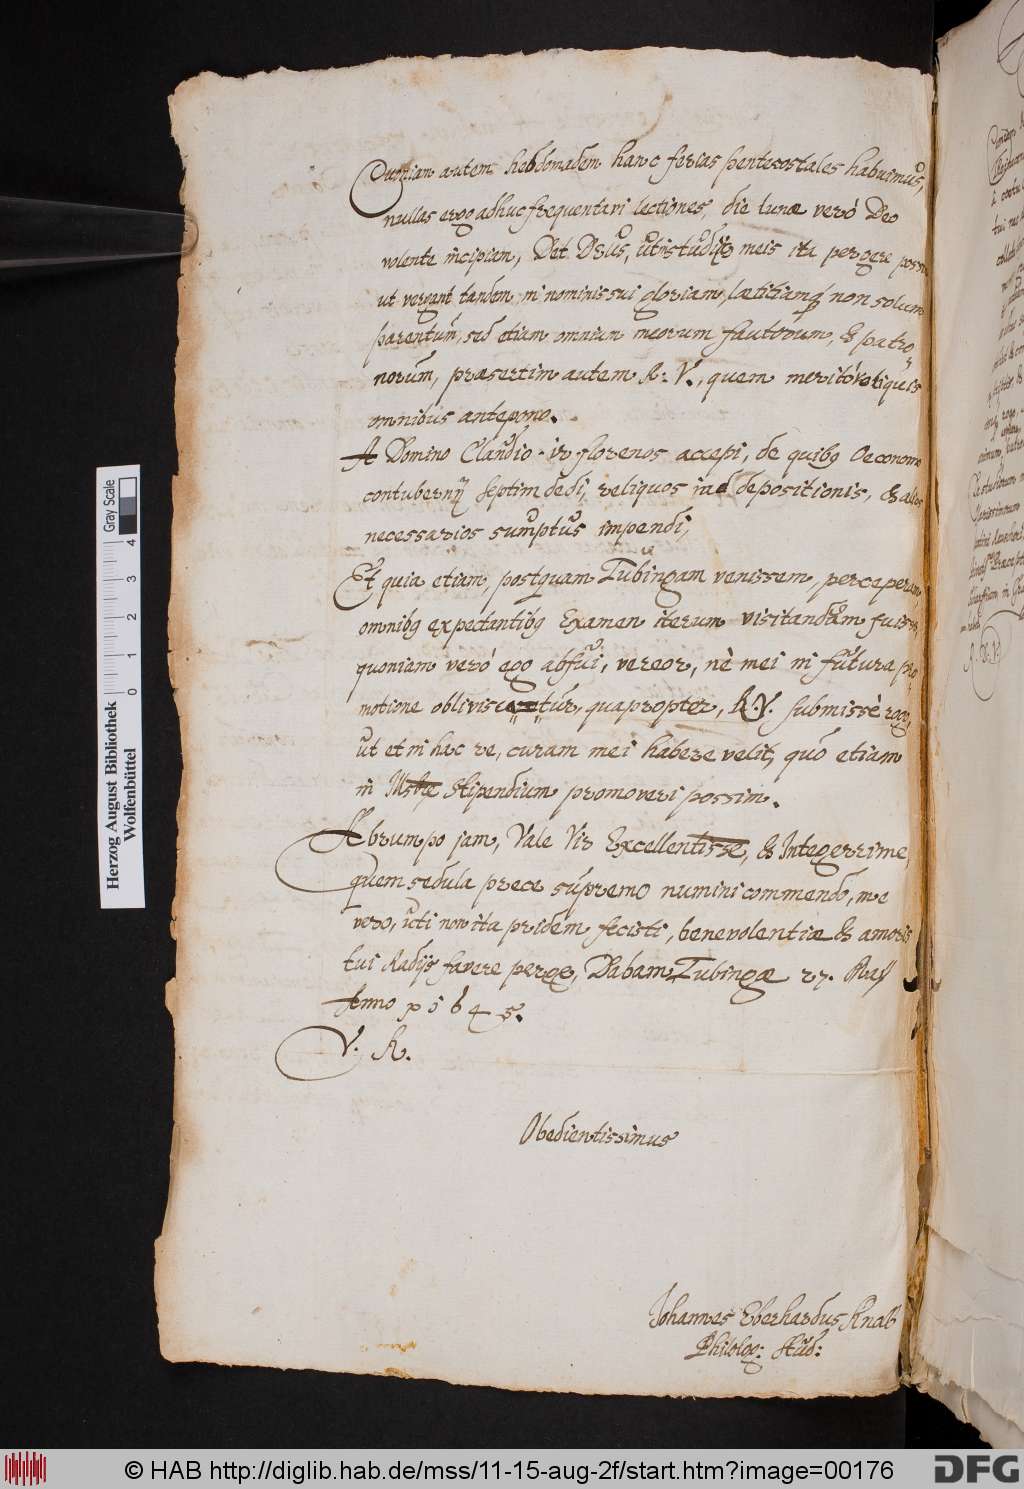 Quoniam autem hebdomadem hanc ferias pentecostales habuimus,
nullas ergo adhuc frequentavi lectiones, die lunæ verò Deo
volente incipiam, Det Deus, uti studijs meis ita pergere possi
ut vergant tandem in nominis sui gloriam, lætitiamq non solum
parentum, sed etiam omnium meorum fautorum, & patro,
norum, præsertim autem R: V., quem meritò reliquis
omnibus antepono.
A Domino Claudio
florenos accepi, de quibq Oeconomo
contubernij septim dedi, reliquos in depositionis, & alios
necessarios sumptus impendi,
Et quia etiam, postquam Tubingam venissem, perceperam,
omnibq expectantibq Examen iterum visitandum fuisse,
quoniam verò ego abfui, vereor, nè mei in futura pro,
motione obliviscantur, quapropter, R.V. submissè rogo,
ut et in hac re, curam mei habere velit, quo etiam
in Illustre stipendium promoveri possim.
Abrumpo jam, Vale Vir Excellentisse, & Integerrime,
Quem sedula prece supremo numini commendo, me
vero, uti non ita pridem fecisti, benevolentiæ & amoris
tui Radijs favere perge, Dabam Tubingæ 27. Maij
Anno 1645.
V. R.
Obedientissimus
Johannes Eberhardus Knab
Philolog: Stud:
Herzog August Bibliothek
Wolfenbüttel
0 1 2 3 4
Gray Scale
© HAB http://diglib.hab.de/mss/11-15-aug-2f/start.htm?image=00176
DFG